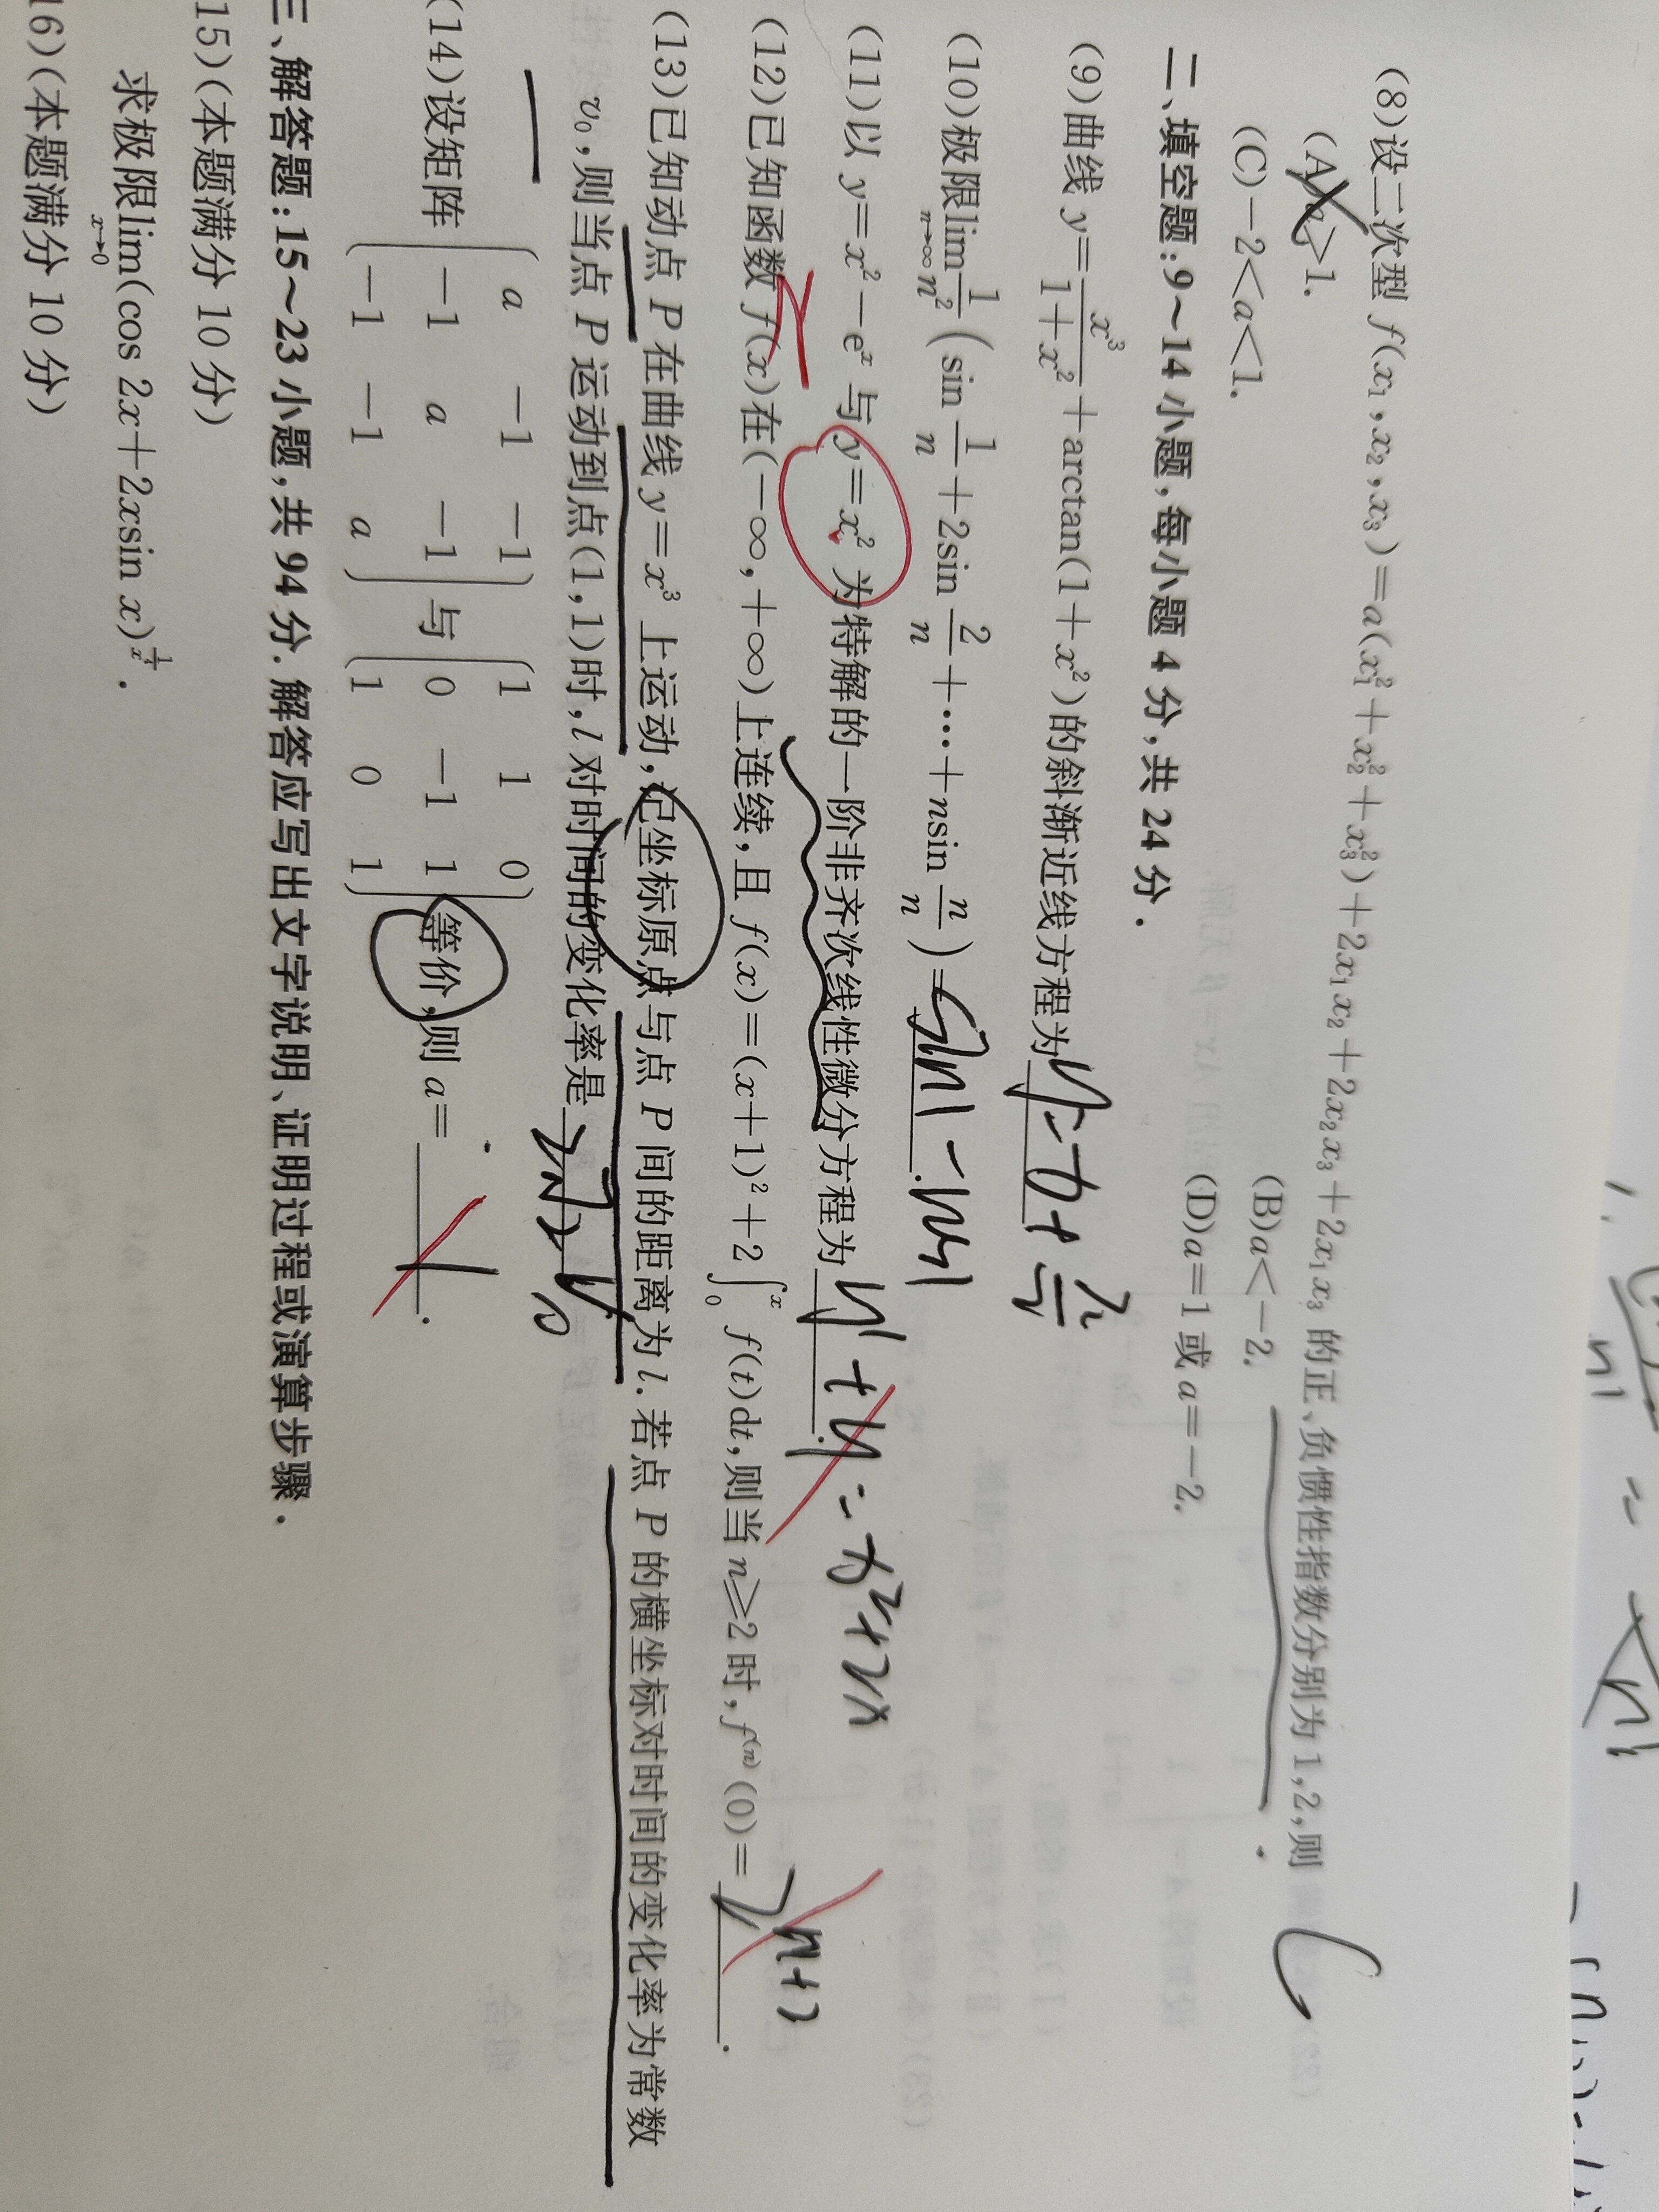 (8)设二次型 f(x₁,x₂,x₃)=a(x₁²+x₂²+x₃²)+2x₁x₂+2x₂x₃+2x₁x₃ 的正、负惯性指数分别为1,2,则
(A)a>1.
(B)a<-2.
(C)-2<a<1.
(D)a=1 或 a=-2.
二、填空题:9～14 小题,每小题 4 分,共 24 分.
(9)曲线 y=x³/(1+x²)+arctan(1+x²)的斜渐近线方程为 y=x+π/2
(10)极限lim n→∞ 1/n²(sin 1/n+2sin 2/n+⋯+nsin n/n)=sin1-cos1.
(11)以 y=x²-eˣ 与 y=x² 为特解的一阶非齐次线性微分方程为 y'+y=x²+2x.
(12)已知函数 f(x)在(-∞,+∞)上连续,且 f(x)=(x+1)²+2∫₀ˣ f(t)dt,则当 n≥2 时,f⁽ⁿ⁾(0)=2ⁿ⁺².
(13)已知动点 P 在曲线 y=x³ 上运动,记坐标原点与点 P 间的距离为 l.若点 P 的横坐标对时间的变化率为常数
v₀,则当点 P 运动到点(1,1)时,l 对时间的变化率是 2√2v₀
(14)设矩阵 (a -1 -1; -1 a -1; -1 -1 a) 与 (1 1 0; 0 -1 1; 1 0 1) 等价,则 a=1.
三、解答题:15～23 小题,共 94 分.解答应写出文字说明、证明过程或演算步骤.
15)(本题满分 10 分)
求极限lim x→0 (cos 2x+2xsin x)
16)(本题满分 10 分)